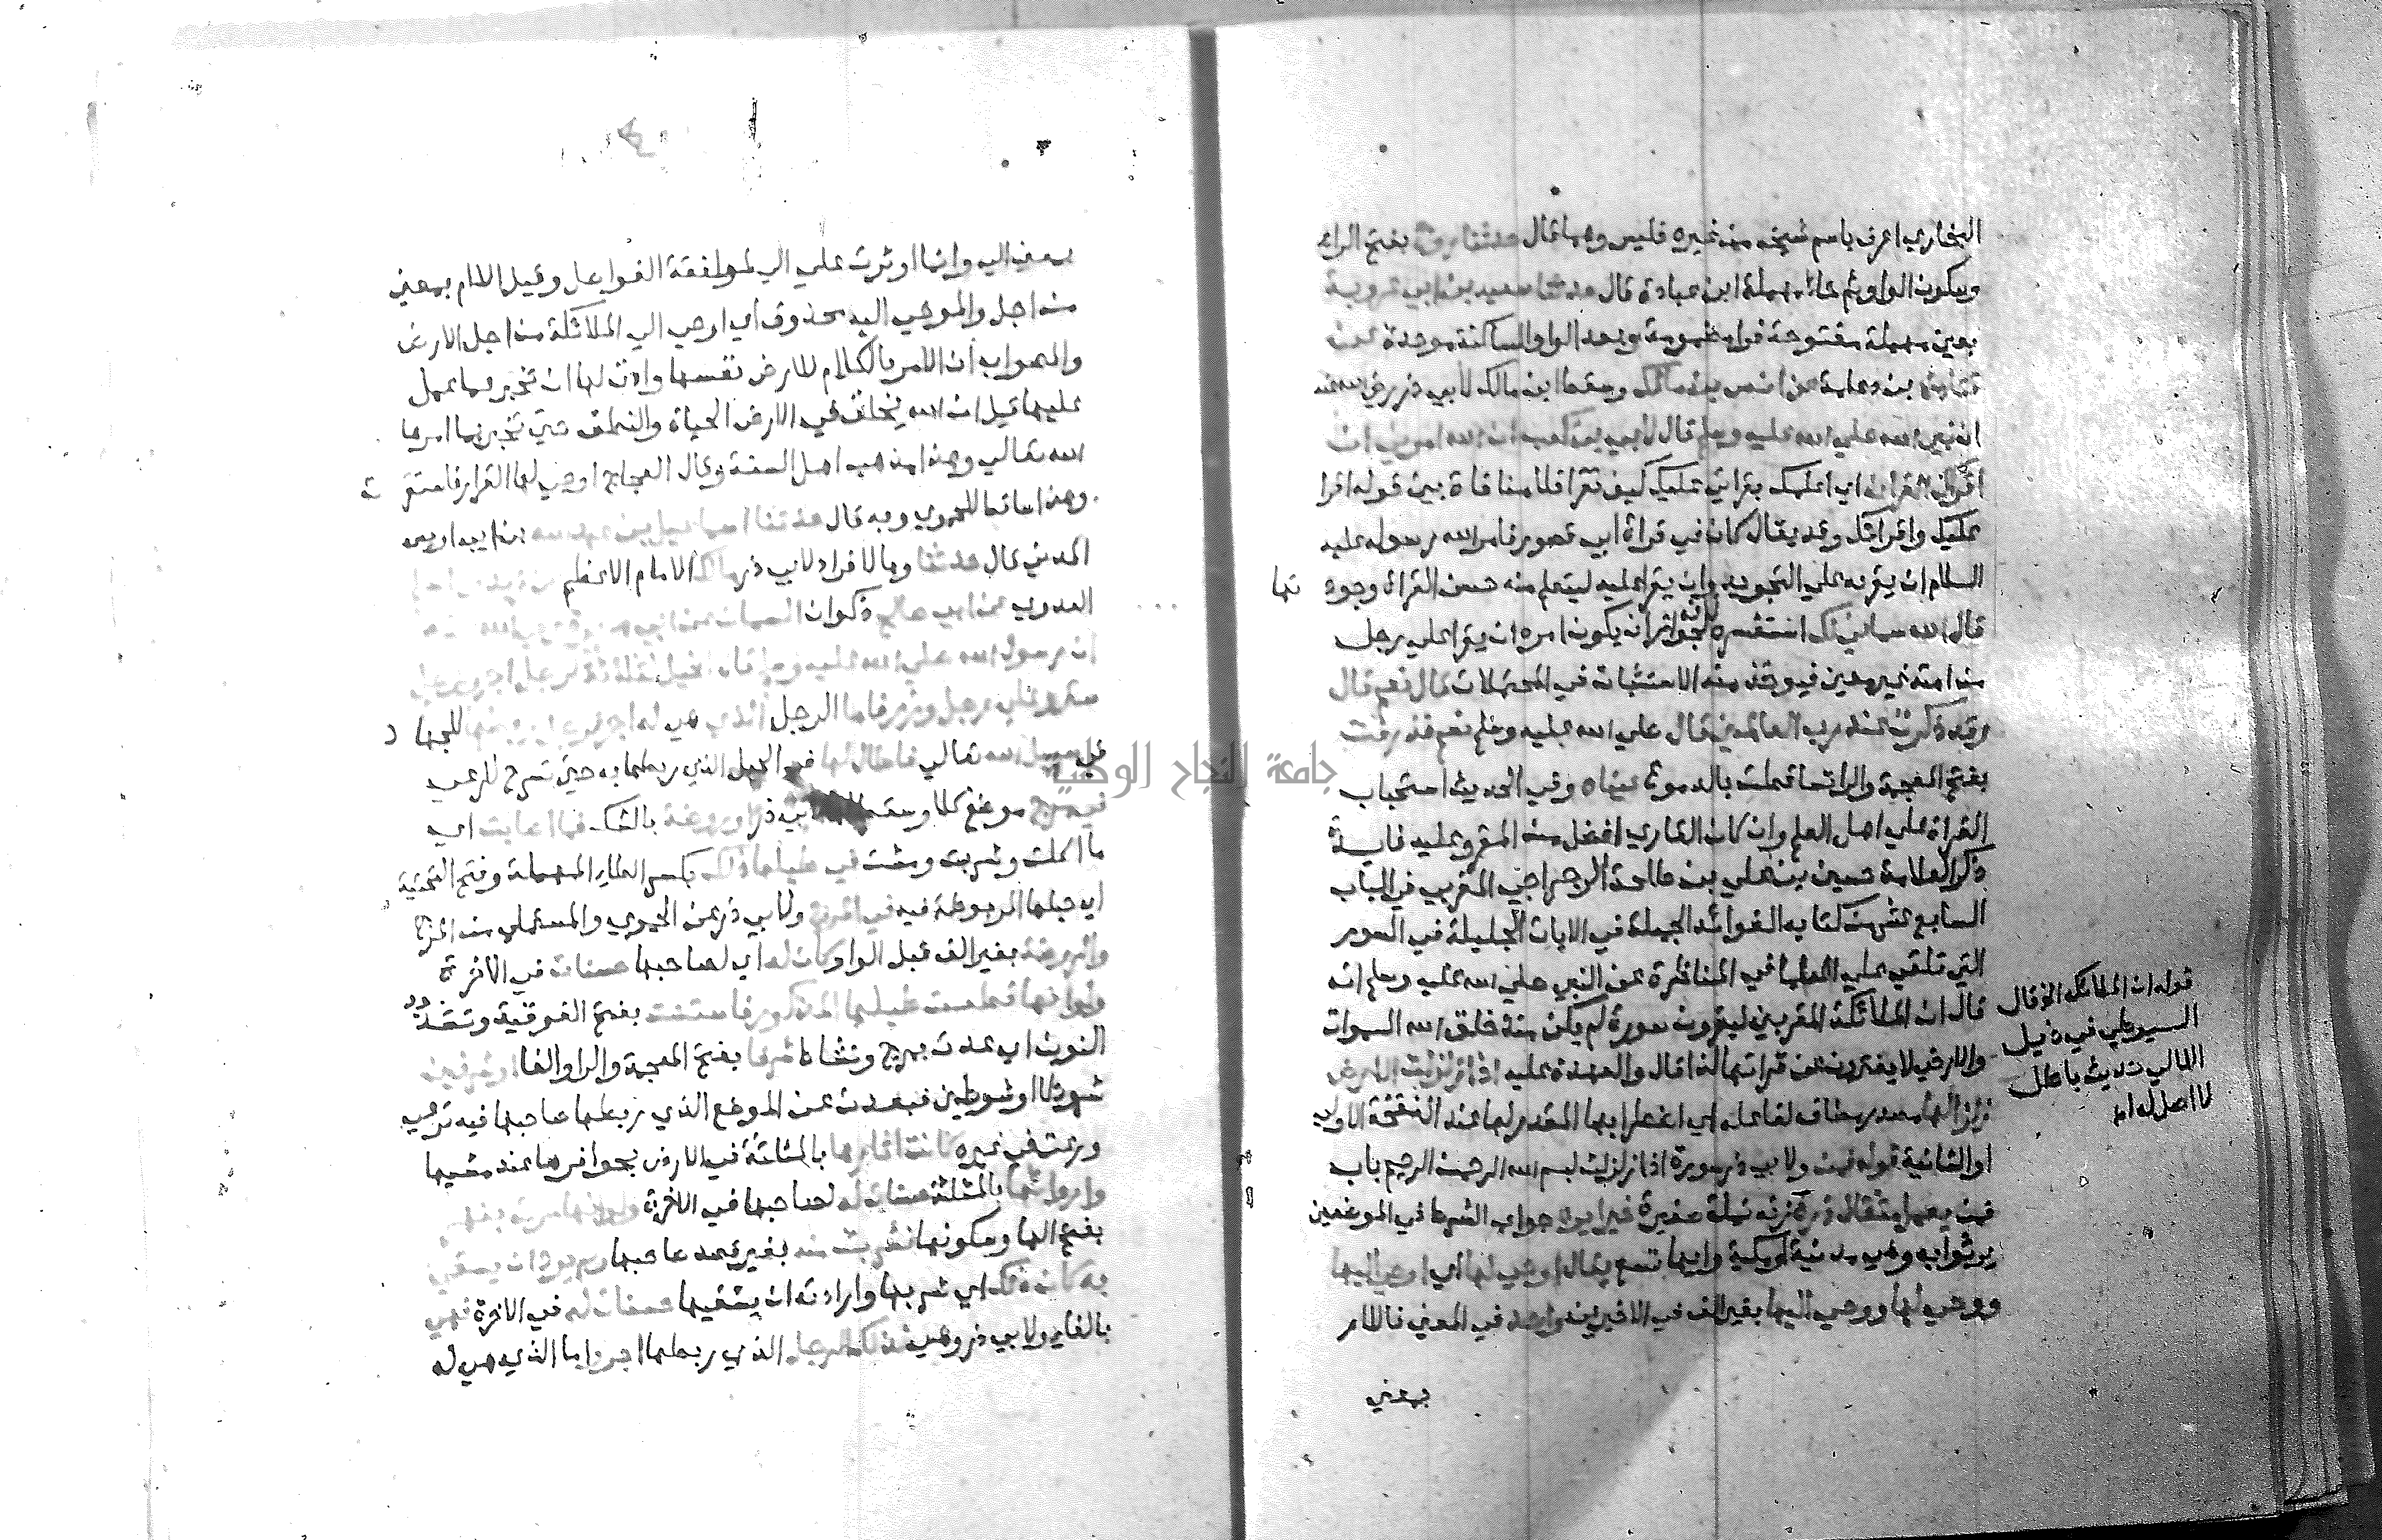 البخاري اعرف باسم شيخه من غيره فليس وهما قال حدثنا روح بفتح الراء
وسكون الواو ثم حاء مهملة ابن عبادة قال حدثنا سعيد بن ابي عروبة
بعين مهملة مفتوحة فراء مضمومة وبعد الواو الساكنة موحدة عن
قتادة بن دعامة عن انس بن مالك وسقط ابن مالك لابي ذر رضي الله عنه
ان نبي الله صلي الله عليه وسلم قال لابي بن كعب ان الله امرني ان
اقرئك القران اي اعلمك بقراتي عليك كيف تقرا فلا منافاة بين قوله اقرا
عليك واقرائك وقد يقال كان في قراة ابي قصور فامر الله رسوله عليه
السلام ان يقريه علي التجويد وان يقرا عليه ليتعلم منه حسن القراة وجودتها
قال الله سماني لك استفسره لانه جوز ان يكون امره ان يقرا علي رجل
من امته غير معين فيوخذ منه الاستثبات في المحتملات قال نعم قال
وقد ذكرت عند رب العالمين قال صلي الله عليه وسلم نعم فذرفت
بفتح المعجمة والراء تساقطت بالدموع عيناه وفي الحديث استحباب
القراة علي اهل العلم وان كان القاري افضل من المقروء عليه فايدة
ذكر العلامة حسين بن علي بن طلحة الرجراجي المغربي في الباب
السابع عشر من كتابه الفوائد الجميلة في الايات الجليلة في السور
التي تلقي علي العلما في المناظرة عن النبي صلي الله عليه وسلم انه
قال ان الملائكة المقربين ليقرون سورة لم يكن منذ خلق الله السموات
والارض لا يفترون عن قراتها كذا قال والعهدة عليه اذا زلزلت الارض
زلزالها مصدر مضاف لفاعله اي اضطرابها المقدر لها عند النفخة الاولي
او الثانية قوله فمن ولابي ذر سورة اذا زلزلت بسم الله الرحمن الرحيم باب
فمن يعمل مثقال ذرة زنة نملة صغيرة خيرا يره جواب الشرط في الموضعين
ير ثوابه وهي مدنية او مكية وايها تسع يقال اوحي لها اي اوحي اليها
ووحي لها ووحي اليها بغير الف في الاخيرين واحد في المعني فاللام
بمعني
قوله ان الملائكة الخ قال
السيوطي في ذيل
اللالي حديث باطل
لا اصل له اه
بمعني الي وانما اوثرت علي الي لموافقة الفواصل وقيل اللام بمعني
من اجل والموحي اليه محذوف اي اوحي الي الملائكة من اجل الارض
والصواب ان الامر بالكلام للارض نفسها واذن لها ان تخبر بما عمل
عليها قيل ان الله يخلق في الارض الحياة والنطق حتي تخبر بما امرها
الله تعالي وهذا مذهب اهل السنة وقال العجاج اوحي لها القرار فاستقرت
وهذا ساقط للحموي وبه قال حدثنا اسماعيل بن عبد الله بن ابي اويس
المدني قال حدثنا وبالافراد لابي ذر مالك الامام الاعظم
العدوي عن ابي صالح ذكوان السمان عن ابي هريرة رضي الله عنه
ان رسول الله صلي الله عليه وسلم قال الخيل لثلاثة لرجل اجر ولرجل
ستر وعلي رجل وزر فاما الرجل الذي هي له اجر فرجل ربطها للجهاد
في سبيل الله تعالي فاطال لها في الحبل الذي ربطها به حتي تسرح للرعي
في مرج موضع كلا وسقط لها لابي ذر او روضة بالشك فما اصابت اي
ما اكلت وشربت ومشت في طيلها ذلك بكسر الطاء المهملة وفتح التحتية
اي حبلها المربوطة فيه في المرج ولابي ذر عن الحموي والمستملي من المرج
والروضة بغير الف قبل الواو كان له اي لصاحبها حسنات في الاخرة
ولو انها قطعت طيلها المذكور فاستنت بفتح الفوقية وتشديد
النون اي عدت بمرح ونشاط شرفا بفتح المعجمة والراء والفا او شرفين
شوطا او شوطين فبعدت عن الموضع الذي ربطها صاحبها فيه ترعي
ورعت في غيره كانت اثارها بالمثلثة في الارض بحوافرها عند مشيها
وارواثها بالمثلثة حسنات له لصاحبها في الاخرة ولو انها مرت بنهر
بفتح الها وسكونها فشربت منه بغير قصد صاحبها ولم يرد ان يسقي
به كان ذلك اي شربها وارادته ان يسقيها حسنات له في الاخرة فهي
بالفاء ولابي ذر وهي لذلك الرجل الذي ربطها اجر واما الذي هي له
جامعة النجاح الوطنية